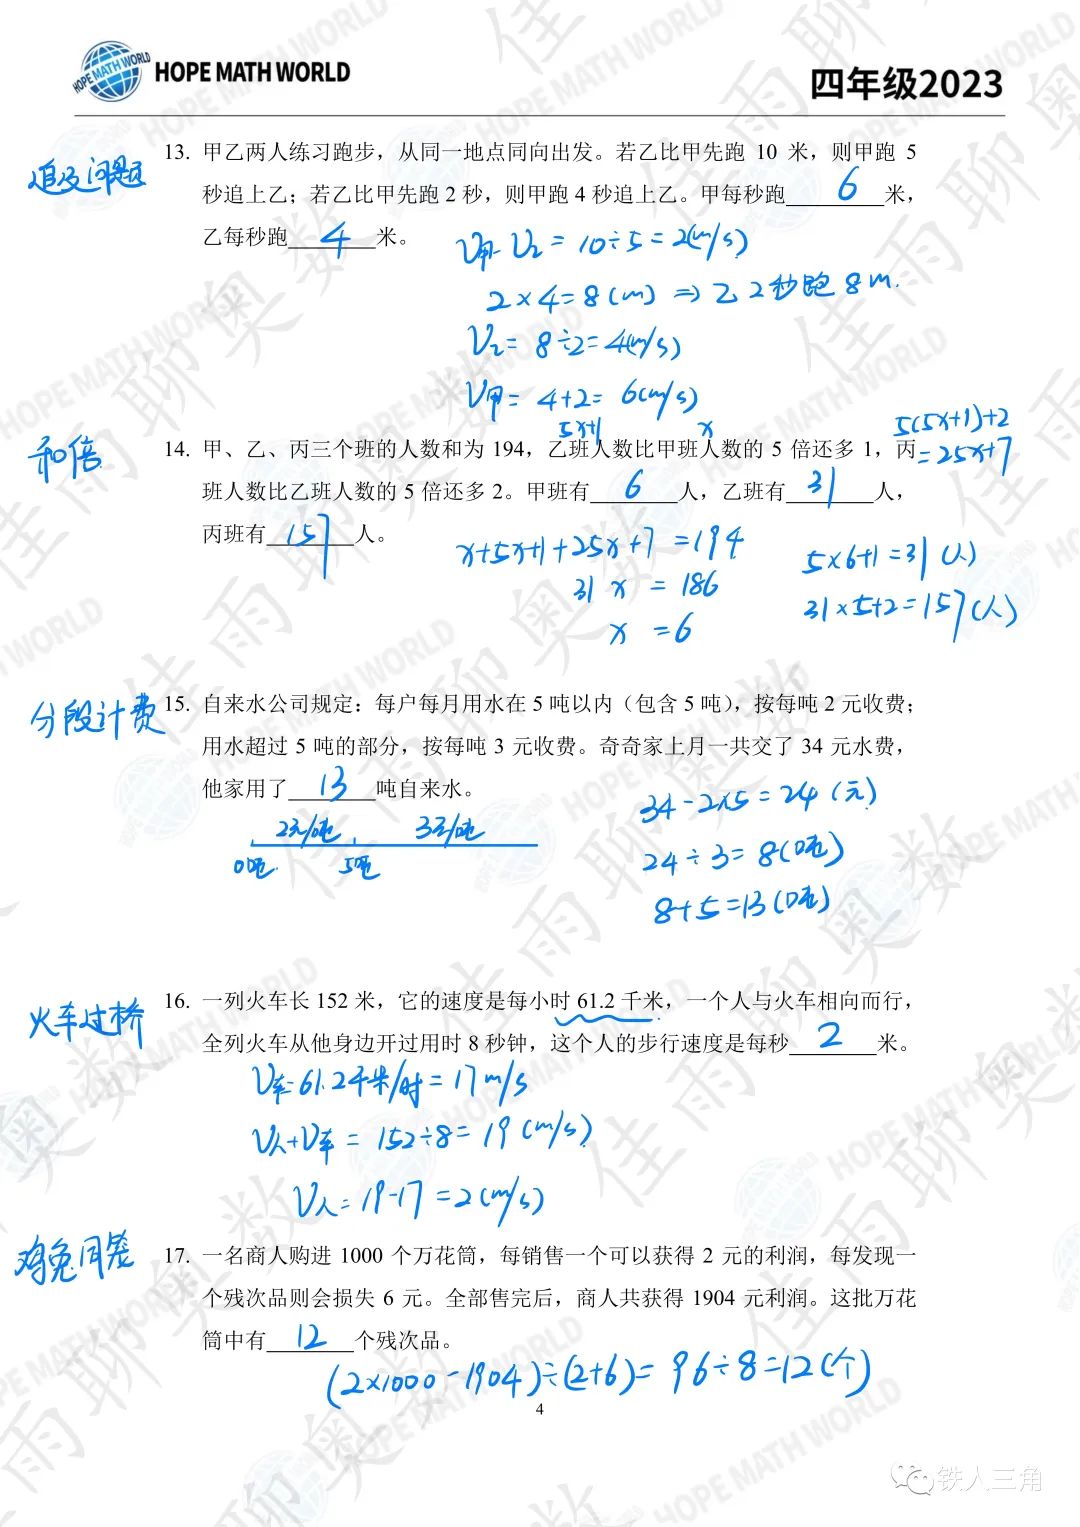 HOPE MATH WORLD
四年级2023
追及问题
13. 甲乙两人练习跑步，从同一地点同向出发。若乙比甲先跑 10 米，则甲跑 5
秒追上乙；若乙比甲先跑 2 秒，则甲跑 4 秒追上乙。甲每秒跑 6 米，
乙每秒跑 4 米。
V甲-V乙=10÷5=2(m/s)
2×4=8(m) ⇒ 乙2秒跑8m.
V乙=8÷2=4(m/s)
V甲=4+2=6(m/s)
5x+1 x 5(5x+1)+2
和倍
14. 甲、乙、丙三个班的人数和为 194，乙班人数比甲班人数的 5 倍还多 1，丙
=25x+7
班人数比乙班人数的 5 倍还多 2。甲班有 6 人，乙班有 31 人，
丙班有 157 人。
x+5x+1+25x+7=194
31x=186
x=6
5×6+1=31(人)
31×5+2=157(人)
分段计费
15. 自来水公司规定：每户每月用水在 5 吨以内（包含 5 吨），按每吨 2 元收费；
用水超过 5 吨的部分，按每吨 3 元收费。奇奇家上月一共交了 34 元水费，
他家用了 13 吨自来水。
2元/吨 3元/吨
0吨 5吨
34-2×5=24(元)
24÷3=8(吨)
8+5=13(吨)
火车过桥
16. 一列火车长 152 米，它的速度是每小时 61.2 千米，一个人与火车相向而行，
全列火车从他身边开过用时 8 秒钟，这个人的步行速度是每秒 2 米。
V车=61.2千米/时=17m/s
V人+V车=152÷8=19(m/s)
V人=19-17=2(m/s)
鸡兔同笼
17. 一名商人购进 1000 个万花筒，每销售一个可以获得 2 元的利润，每发现一
个残次品则会损失 6 元。全部售完后，商人共获得 1904 元利润。这批万花
筒中有 12 个残次品。
(2×1000-1904)÷(2+6)=96÷8=12(个)
4
佳雨聊奥数
铁人三角